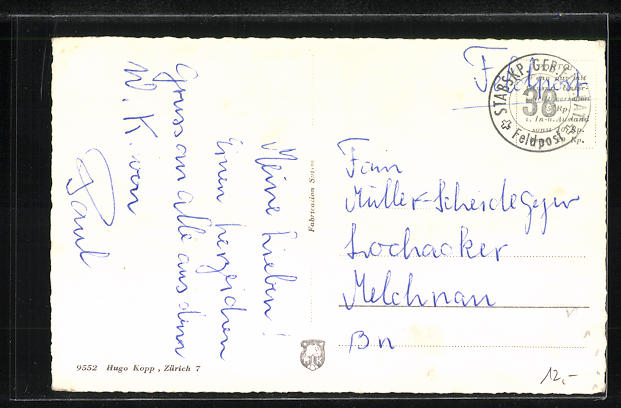 Meine Lieben!
Einen herzlichen
Gruss an alle aus dem
W. K. von
Paul
Fabrication Suisse
9552 Hugo Kopp, Zürich 7
HK
Feldpost
STABSKP. GER.
38
Feldpost
i. In-u. Ausland
sonst
Rp.
Fam
Müller-Scheidegger
Lochacker
Melchnau
Bn
12,-